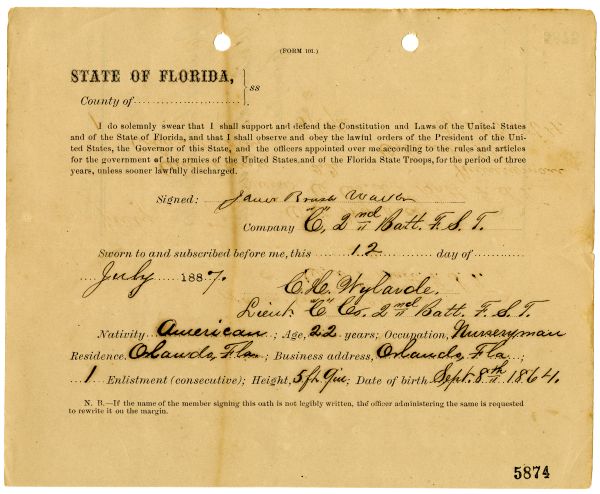 (FORM 101.)
STATE OF FLORIDA,
ss
County of
I do solemnly swear that I shall support and defend the Constitution and Laws of the United States
and of the State of Florida, and that I shall observe and obey the lawful orders of the President of the Uni-
ted States, the Governor of this State, and the officers appointed over me according to the rules and articles
for the government of the armies of the United States and of the Florida State Troops, for the period of three
years, unless sooner lawfully discharged.
Signed:
Company "C", 2nd Batt. F. S. T.
Sworn to and subscribed before me, this 12 day of
July 1887.
Lieut. "C" Co. 2nd Batt. F. S. T.
Nativity American; Age, 22 years; Occupation, Nurseryman
Residence, Orlando, Fla; Business address, Orlando, Fla;
1 Enlistment (consecutive); Height, 5 ft 9 in; Date of birth Sept. 8th 1864.
N. B.—If the name of the member signing this oath is not legibly written, the officer administering the same is requested
to rewrite it on the margin.
5874